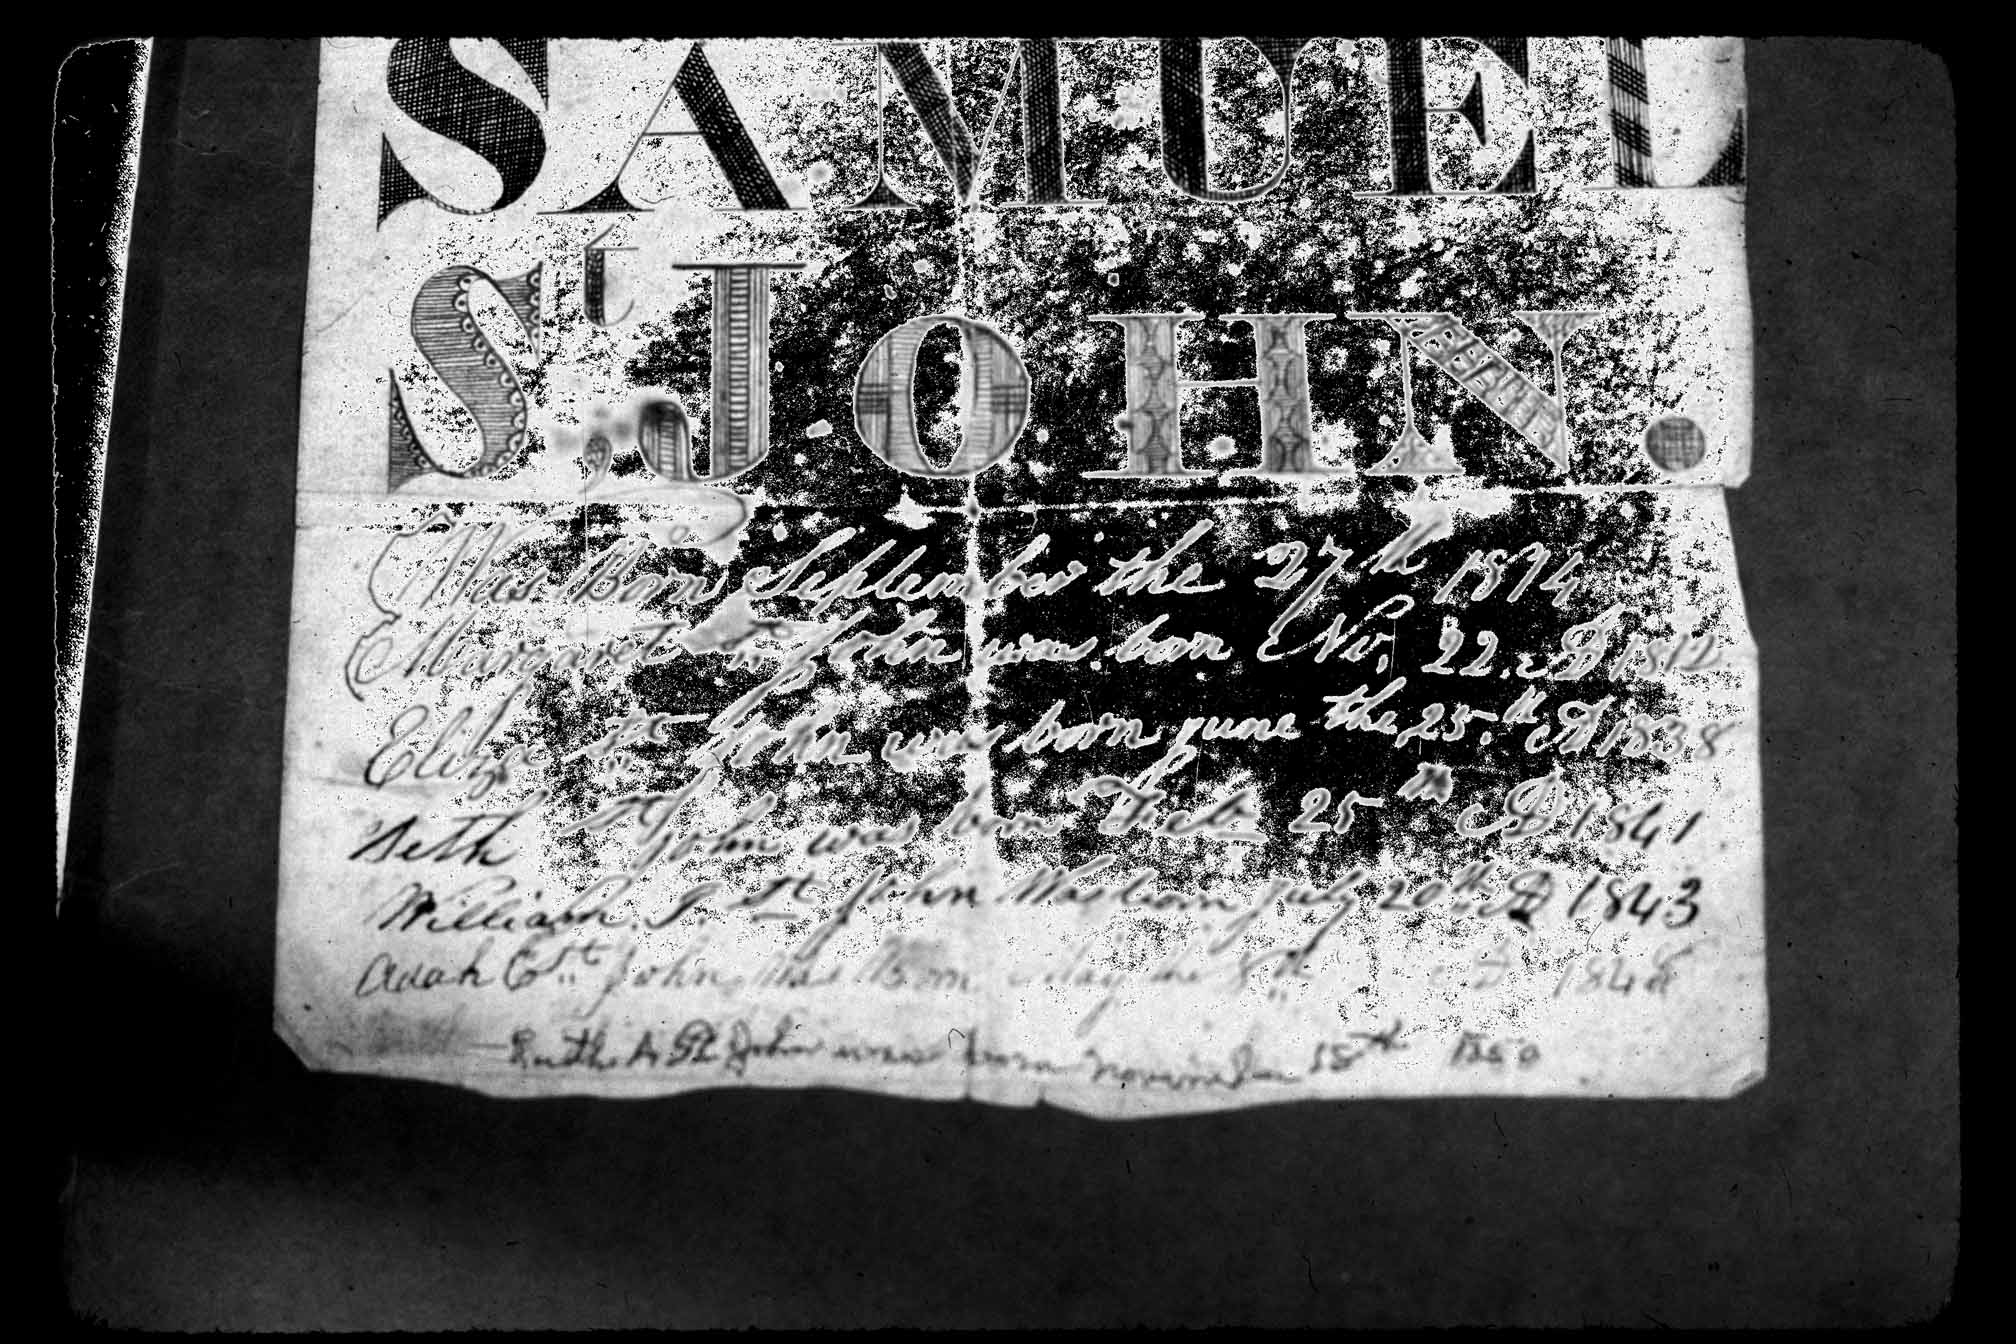 SAMUEL
St JOHN.
Was Born September the 27th 1814
Margaret St John was born Nv. 22. AD 1812
Eliza St John was born june the 25th AD 1838
Seth St John was born 25th AD 1841
William. S. St John Was born july 20th AD 1843
Adah E St John Was Born May the 8th AD 1848
Ruth A St John was born November 18th 1850